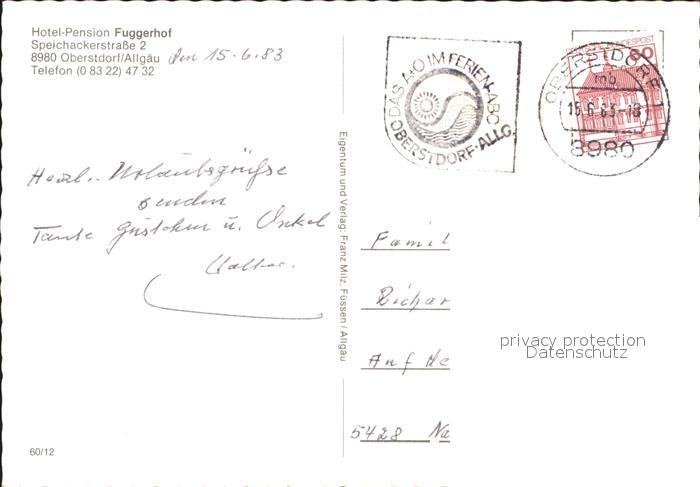 Hotel-Pension Fuggerhof
Speichackerstraße 2
8980 Oberstdorf/Allgäu
Telefon (0 83 22) 47 32
den 15.6.83
Herzl. Urlaubsgrüße
senden
Tante Gustchen u. Onkel
Walter.
60/12
Eigentum und Verlag: Franz Milz, Füssen / Allgäu
DAS A+O IM FERIEN-ABC
OBERSTDORF·ALLG.
DEUTSCHE BUNDESPOST
60
OBERSTDORF
mb
15.6.83-18
8980
Famil
Richar
Auf de
5428 Na
privacy protection
Datenschutz